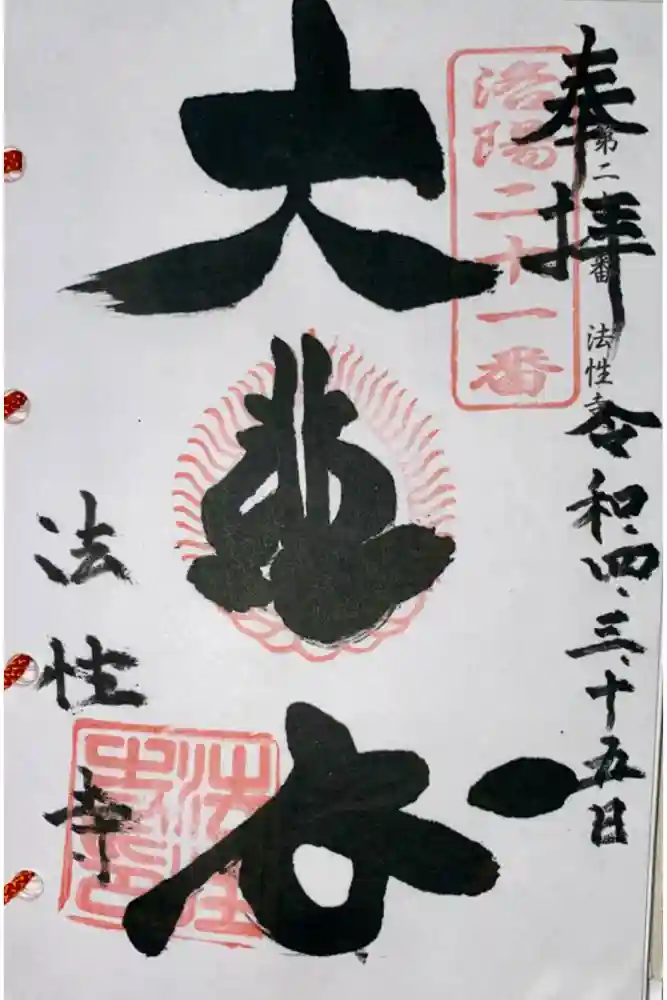 奉拝
第二番 法性寺
令和四、三、十五日
洛陽二十一番
大悲
法性寺
法性寺印